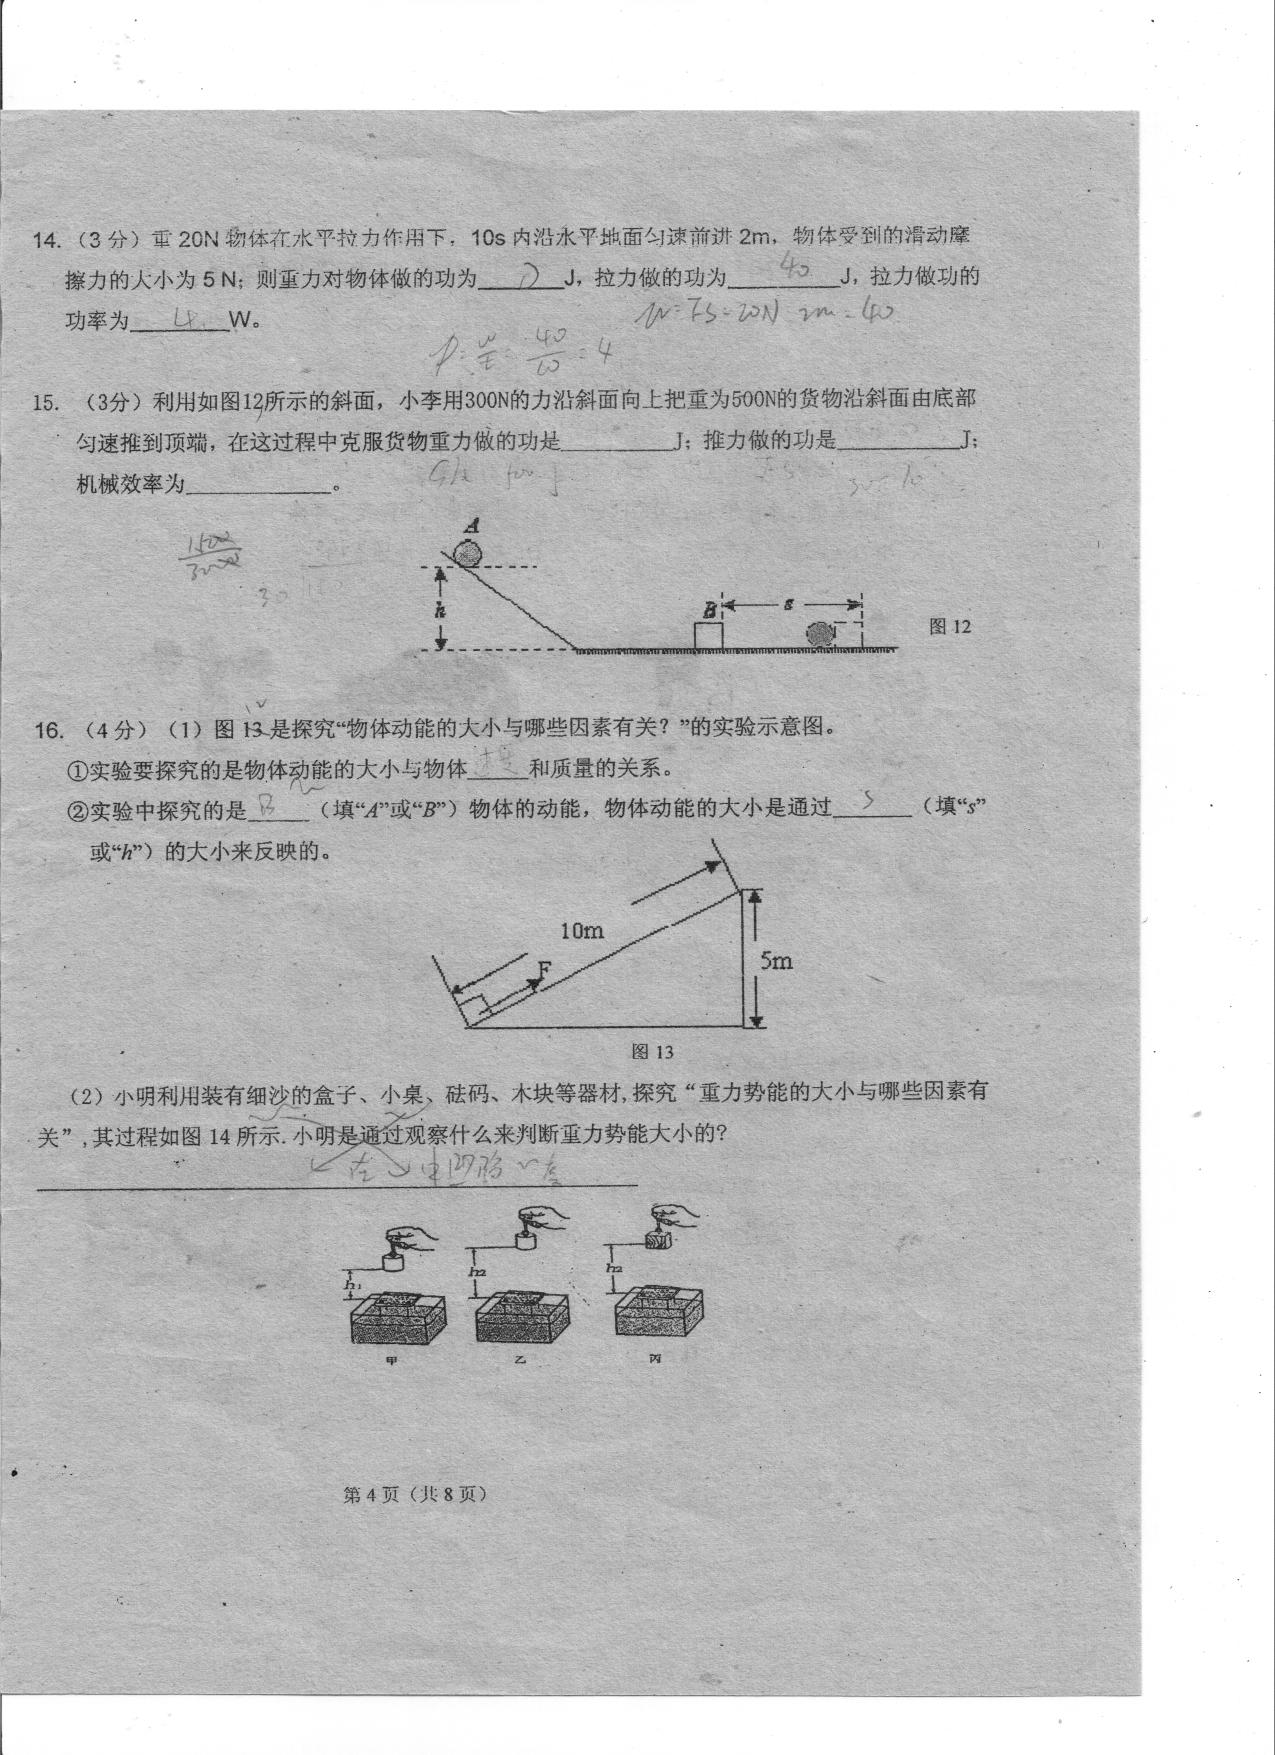 14.（3 分）重 20N 物体在水平拉力作用下，10s 内沿水平地面匀速前进 2m，物体受到的滑动摩
擦力的大小为 5 N；则重力对物体做的功为 0 J，拉力做的功为 40 J，拉力做功的
功率为 4 W。
W=FS=20N 2m=40
P=W/t=40/10=4
15. （3分）利用如图12所示的斜面，小李用300N的力沿斜面向上把重为500N的货物沿斜面由底部
匀速推到顶端，在这过程中克服货物重力做的功是________J；推力做的功是________J；
Gh
机械效率为________。
1500
3000
30
A
h
B
s
图 12
16.（4 分）（1）图 13 是探究“物体动能的大小与哪些因素有关？”的实验示意图。
①实验要探究的是物体动能的大小与物体 速度 和质量的关系。
②实验中探究的是 B （填“A”或“B”）物体的动能，物体动能的大小是通过 s （填“s”
或“h”）的大小来反映的。
10m
F
5m
图 13
（2）小明利用装有细沙的盒子、小桌、砝码、木块等器材,探究“重力势能的大小与哪些因素有
关”,其过程如图 14 所示.小明是通过观察什么来判断重力势能大小的?
h₁
h₂
h₂
甲
乙
丙
第 4 页（共 8 页）